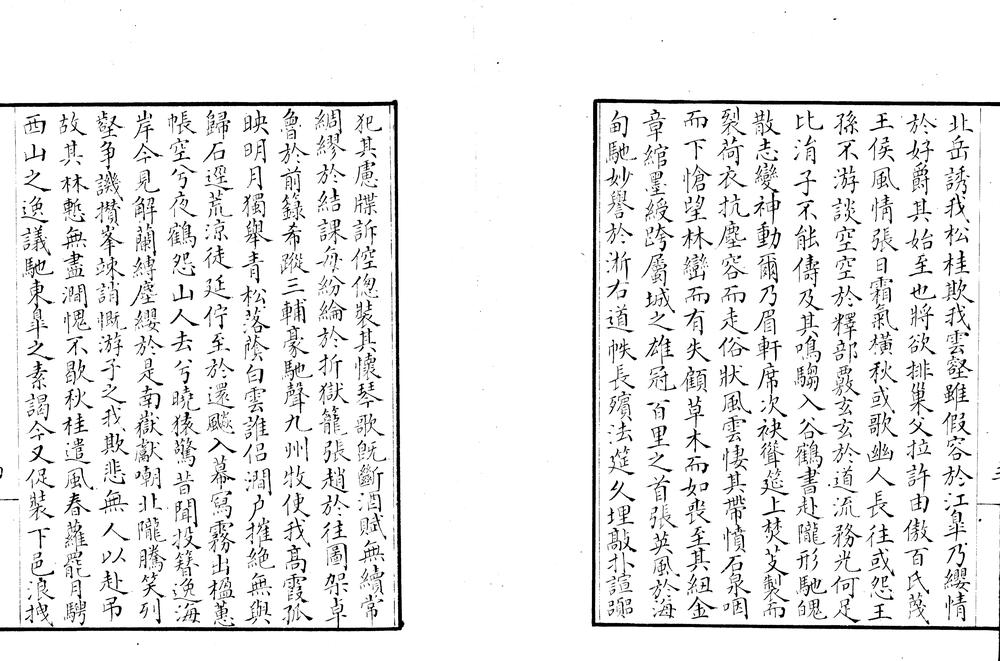 北岳誘我松桂欺我雲壑雖假容於江皐乃纓情
於好爵其始至也將欲排巢父拉許由傲百氏蔑
王侯風情張日霜氣橫秋或歌幽人長往或怨王
孫不游談空空於釋部覈玄玄於道流務光何足
比涓子不能儔及其鳴騶入谷鶴書赴隴形馳魄
散志變神動爾乃眉軒席次袂聳筵上焚芰製而
裂荷衣抗塵容而走俗狀風雲悽其帶憤石泉咽
而下愴望林巒而有失顧草木而如喪至其紐金
章綰墨綬跨屬城之雄冠百里之首張英風於海
甸馳妙譽於浙右道帙長殯法筵久埋敲扑諠囂
犯其慮牒訴倥傯裝其懷琴歌既斷酒賦無續常
綢繆於結課每紛綸於折獄籠張趙於往圖架卓
魯於前錄希蹤三輔豪馳聲九州牧使我高霞孤
映明月獨舉青松落蔭白雲誰侶澗戶摧絕無與
歸石逕荒涼徒延佇至於還飈入幕寫霧出楹蕙
帳空兮夜鶴怨山人去兮曉猿驚昔聞投簪逸海
岸今見解蘭縛塵纓於是南嶽獻嘲北隴騰笑列
壑爭譏攢峯竦誚慨游子之我欺悲無人以赴弔
故其林慙無盡澗愧不歇秋桂遣風春蘿罷月騁
西山之逸議馳東皐之素謁今又促裝下邑浪拽